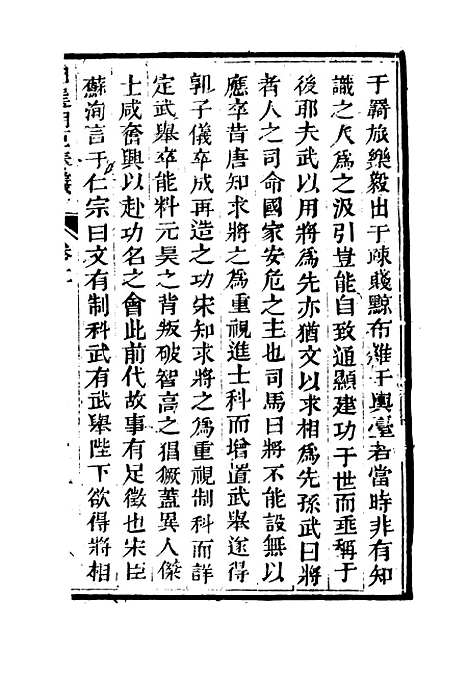 于羇旅樂毅出于疎賤黥布雜于輿臺若當時非有知
識之人爲之汲引豈能自致通顯建功于世而垂稱于
後耶夫武以用將爲先亦猶文以求相爲先孫武曰將
者人之司命國家安危之主也司馬曰將不能設無以
應卒昔唐知求將之爲重視進士科而增置武舉遂得
郭子儀卒成再造之功宋知求將之爲重視制科而詳
定武舉卒能料元昊之背叛破智高之猖獗蓋異人傑
士咸奮興以赴功名之會此前代故事有足徵也宋臣
蘇洵言于仁宗曰文有制科武有武舉陛下欲得將相